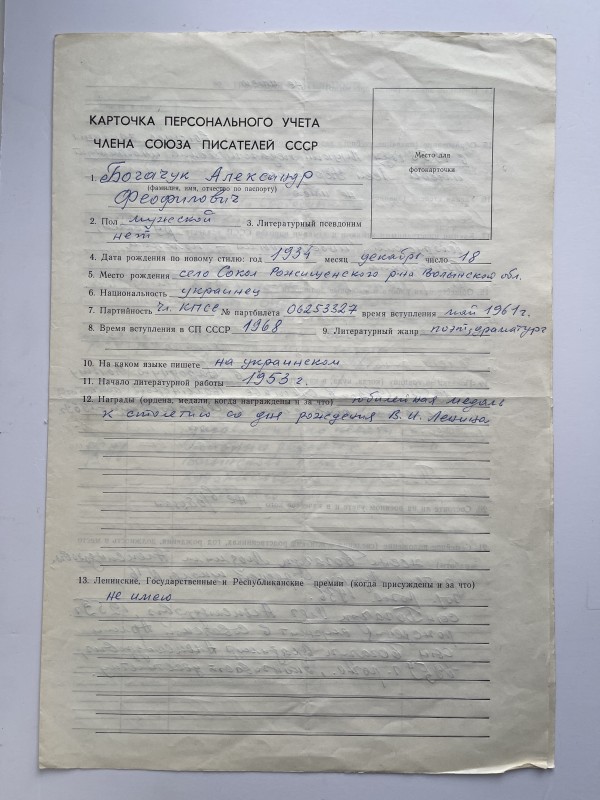 КАРТОЧКА ПЕРСОНАЛЬНОГО УЧЕТА
ЧЛЕНА СОЮЗА ПИСАТЕЛЕЙ СССР
Место для
фотокарточки
1. Богачук Александр
(фамилия, имя, отчество по паспорту)
Феофилович
2. Пол мужской 3. Литературный псевдоним
нет
4. Дата рождения по новому стилю: год 1934 месяц декабрь число 18
5. Место рождения село Сокол Рожищенского р-на Волынской обл.
6. Национальность украинец
7. Партийность чл. КПСС № партбилета 06253327 время вступления май 1961 г.
8. Время вступления в СП СССР 1968 9. Литературный жанр поэт, драматург
10. На каком языке пишете на украинском
11. Начало литературной работы 1953 г.
12. Награды (ордена, медали, когда награждены и за что) юбилейная медаль
к столетию со дня рождения В. И. Ленина
13. Ленинские, Государственные и Республиканские премии (когда присуждены и за что)
не имею